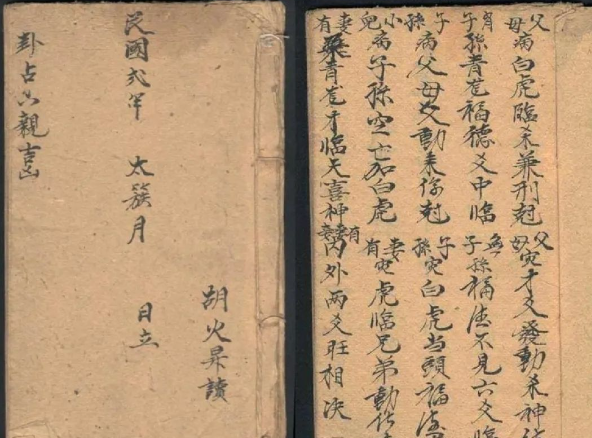 胡火昇讀
民國弍年 太簇月 日立
卦占六親吉凶
父母病白虎臨杀兼刑尅
父母灾才爻發動杀神
有子孫青龍福德爻中臨
無子孫福德不見六爻臨
子孫病父母爻動来傷尅
子孫灾白虎當頭福德
小兒病子孫空亡加白虎
妻有灾虎臨兄弟動
妻有青龍才臨天喜神
有妻妾内外两爻旺相决